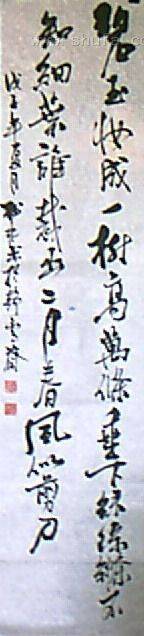 碧玉妆成一樹高萬條垂下綠絲絛不
知細葉誰裁出二月春風似剪刀
戊子年夏月